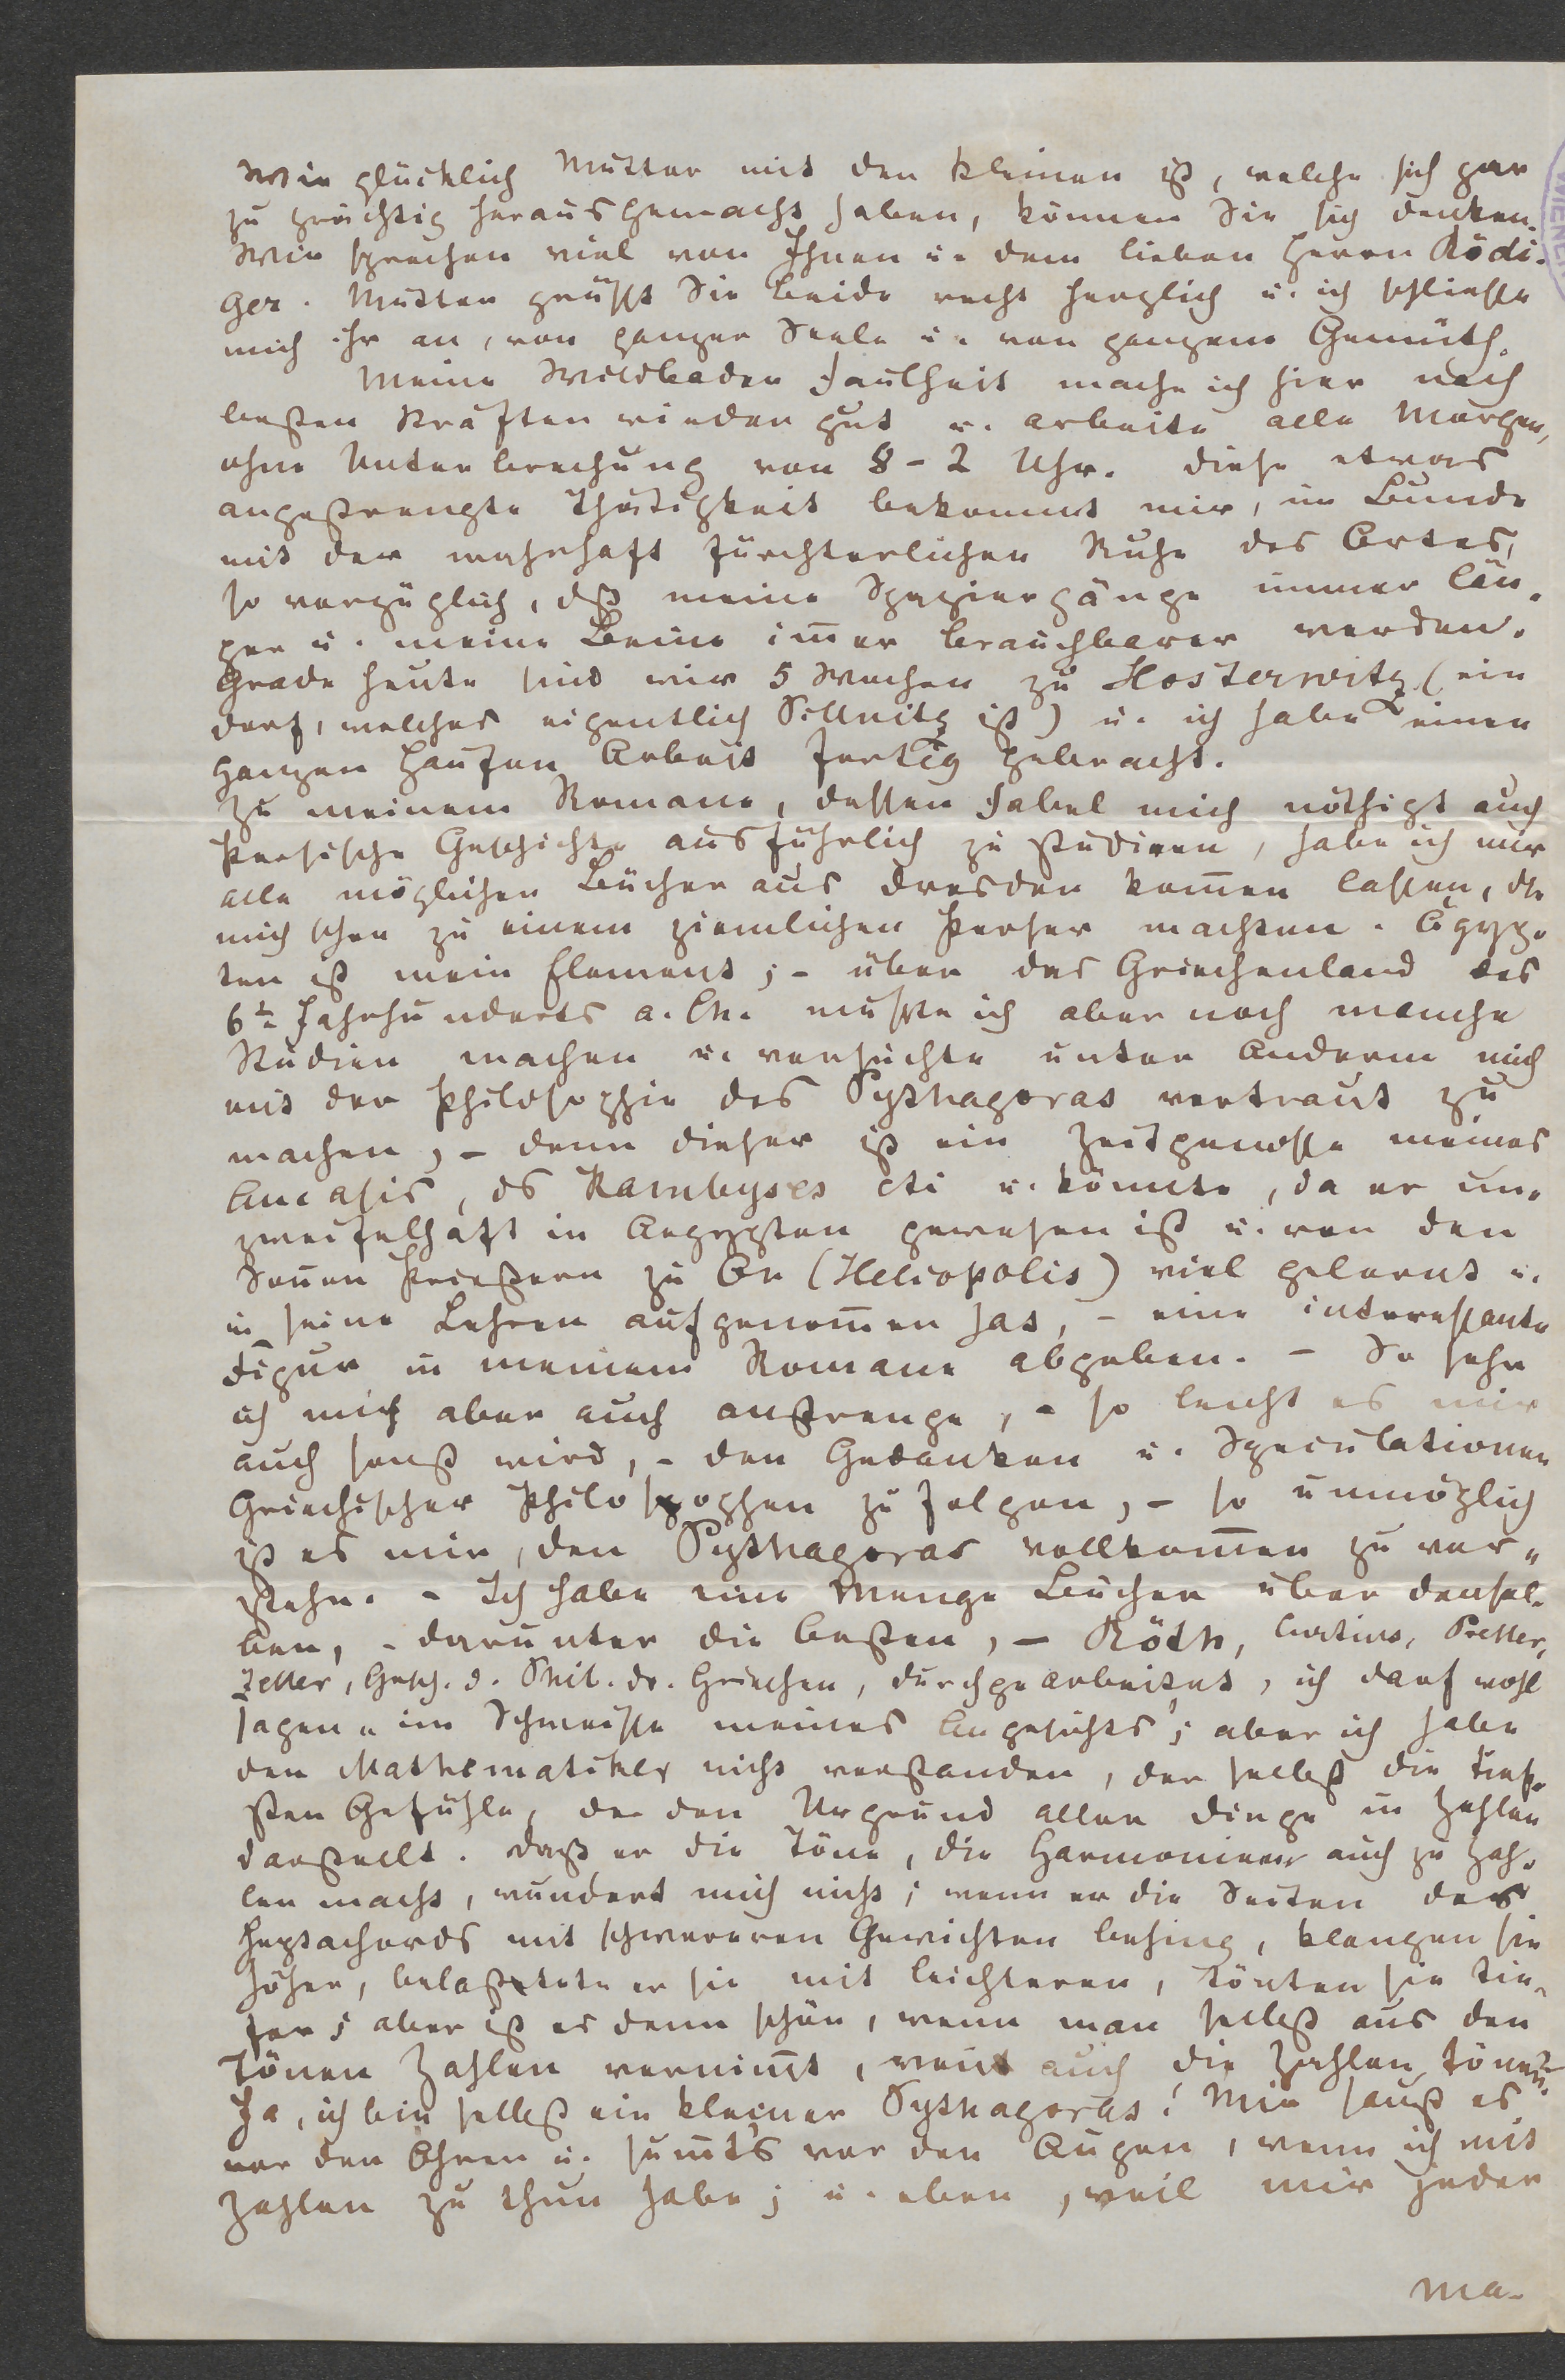 Wie glücklich Mutter mit den Kleinen ist, welche sich gar
zu prächtig herausgemacht haben, können Sie sich denken.
Wir sprechen viel von Ihnen u. dem lieben Herrn Rödi-
ger. Mutter grüßt Sie Beide recht herzlich u. ich schließe
mich ihr an, von ganzer Seele u. von ganzem Gemüth.
Meine Wildbader Faulheit mache ich hier nach
besten Kräften wieder gut u. arbeite alle Morgen,
ohne Unterbrechung von 8-2 Uhr. Diese etwas
angestrengte Thätigkeit bekommt mir, im Bunde
mit der wahrhaft fürchterlichen Ruhe des Ortes,
so vorzüglich, dß meine Spaziergänge immer län-
ger u. meine Beine im̄er brauchbarer werden.
Grade heute sind wir 5 Wochen zu Hosterwitz (ein
Dorf, welches eigentlich Pillnitz ist) u. ich habe einen
ganzen Haufen Arbeit fertig gebracht.
Zu meinem Romane, dessen Fabel mich nöthigt auch
Persische Geschichte ausführlich zu studiren, habe ich mir
alle möglichen Bücher aus Dresden kom̄en lassen, die
mich schon zu einem ziemlichen Perser machten. Ägyp-
ten ist mein Element; - über das Griechenland des
6t. Jahrhunderts a. Ch. mußte ich aber noch manche
Studien machen u. versuchte unter Anderm mich
mit der Philosophie des Pythagoras vertraut zu
machen, - denn dieser ist ein Zeitgenosse meines
Amasis, ds Kambyses etc u. könnte, da er un-
zweifelhaft in Aegypten gewesen ist u. von den
Son̄en Priestern zu On (Heliopolis) viel gelernt u.
in seine Lehren aufgenom̄en hat, - eine interessante
Figur in meinem Romane abgeben. - So sehr
ich mich aber auch anstrenge, - so leicht es mir
auch sonst wird, - den Gedanken u. Speculationen
Griechischer Philosophen zu folgen, - so unmöglich
ist es mir, den Pythagoras vollkom̄en zu ver-
stehn. - Ich habe eine Menge Bücher über densel-
ben, - darunter die besten, - Röth, Curtius, Preller,
Zeller, Gesch. d. Phil. dr. Griechen, durchgearbeitet, ich darf wohl
sagen „im Schweiße meines Angesichts"; aber ich habe
den Mathematiker nicht verstanden, der selbst die tief-
sten Gefühle, der den Urgrund aller Dinge in Zahlen
darstellt. Daß er die Töne, die Harmonieen auch zu Zah-
len macht, wundert mich nicht; wenn er die Seiten des
Heptachords mit schwereren Gewichten behing, klangen sie
höher, belastete er sie mit leichteren, tönten sie tie-
fer; aber ist es denn schön, wenn man selbst aus den
Tönen Zahlen vernim̄t, wen̄ auch die Zahlen tönen?
Ja, ich bin selbst ein kleiner Pythagoras! Mir saust es
vor den Ohren u. sum̄t's vor den Augen, wenn ich mit
Zahlen zu thun habe; u. eben, weil mir jeder
Ma-